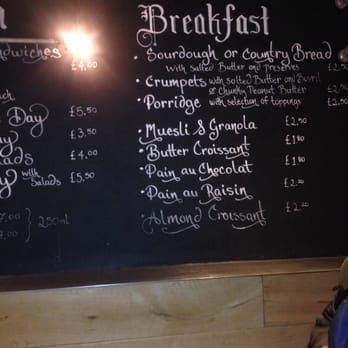 Sandwiches £4.00
Day £5.50
£3.50
Salads £4.00
with Salads £5.50
7.00
7.00 } 250ml
Breakfast
• Sourdough or Country Bread
with salted Butter and Preserves £2.50
• Crumpets with salted Butter and Bovril
or Chunky Peanut Butter £2.50
• Porridge with selection of toppings £2.50
• Muesli & Granola £2.50
• Butter Croissant £1.80
• Pain au Chocolat £1.80
• Pain au Raisin £2.20
• Almond Croissant £2.20